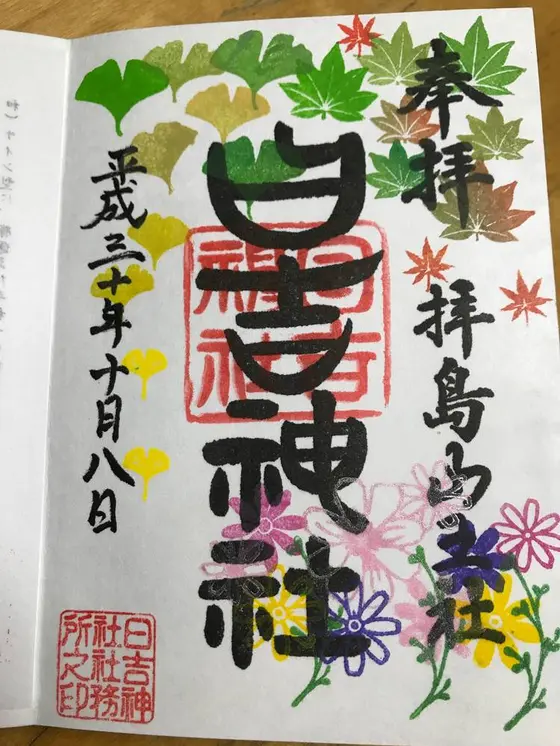 奉拝
拝島山王社
日吉神社
日吉
神社
平成三十年十月八日
日吉神
社社務
所之印